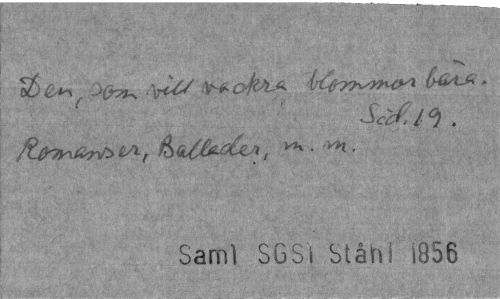 Den, som vill vackra blommor bära.
Sid. 19.
Romanser, Ballader, m. m.
Saml SGSl Ståhl 1856